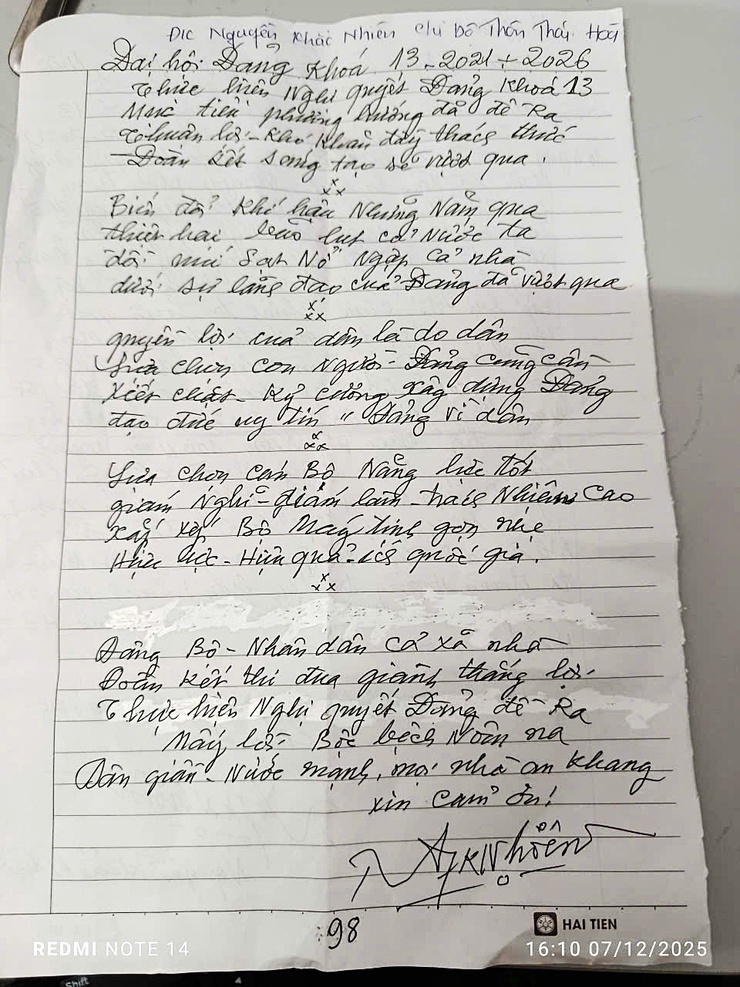 Đ/c Nguyễn Khắc Nhiên chi bộ Thôn Thái Hoà
Đại hội Đảng Khoá 13-2021 ÷ 2026
Thực hiện Nghị quyết Đảng Khoá 13
Mục tiêu phương hướng đã đề Ra
Thuận lợi - Khó khăn đầy thách thức
Đoàn kết sáng tạo sẽ vượt qua.
x x x
Biến đổi Khí hậu Những Năm qua
thiệt hại bão lụt cả Nước ta
đồi núi Sạt Nở Ngập cả nhà
dưới sự lãng đạo của Đảng đã vượt qua
x x x
quyền lợi của dân là do dân
Lựa chọn con Người - Đảng cũng cần
Xiết chặt - Kỷ cương xây dựng Đảng
tạo uy tín " Đảng vì dân
x x x
Lựa chọn cán Bộ Năng lực tốt
giám Nghĩ - giám làm - trách Nhiệm Cao
Bộ Máy tinh gọn nhẹ
Hiệu lực - Hiệu quả - ích quốc gia.
x x x
Đảng Bộ - Nhân dân Cả Xã nhà
Đoàn kết thi đua giành thắng lợi
Thực hiện Nghị quyết Đảng đề Ra
Mấy lời Bộc bệch Nôm na
Dân giàn - Nước mạnh, mọi nhà an Khang
Xin Cảm ơn!
98
HAI TIEN
REDMI NOTE 14
16:10 07/12/2025
Shift